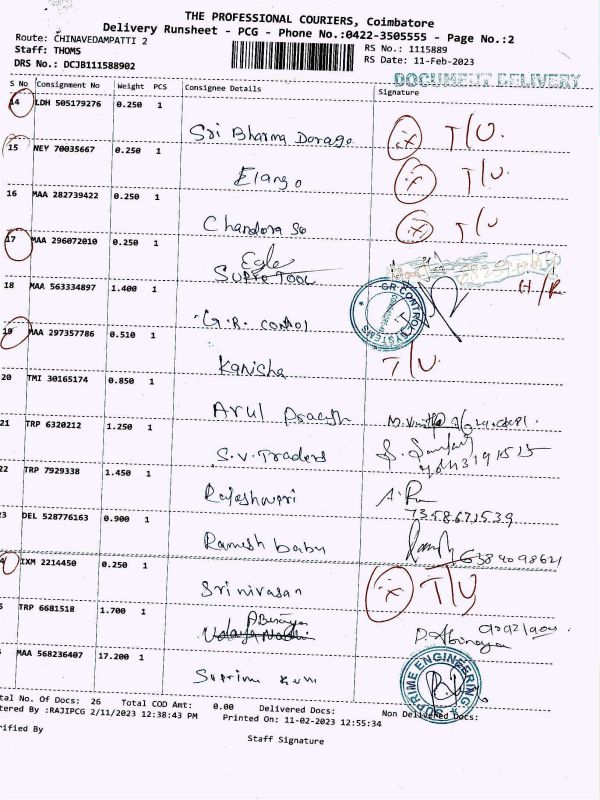 THE PROFESSIONAL COURIERS, Coimbatore
Delivery Runsheet - PCG - Phone No.:0422-3505555 - Page No.:2
Route: CHINAVEDAMPATTI 2
RS No.: 1115889
Staff: THOMS
RS Date: 11-Feb-2023
DRS No.: DCJB111588902
DOCUMENT DELIVERY
S No Consignment No Weight PCS Consignee Details Signature
14 LDH 505179276 0.250 1
Sri Dharma T/U.
15 NEY 70035667 0.250 1
Elango T/U.
16 MAA 282739422 0.250 1
T/U
17 MAA 296072010 0.250 1
Egle
TOOL
18 MAA 563334897 1.400 1
G.R. CONTROL SYSTEMS
G.R. control
19 MAA 297357786 0.510 1
Kanisha T/U.
20 TMI 30165174 0.850 1
Arul
21 TRP 6320212 1.250 1
S.V. Traders
22 TRP 7929338 1.450 1
Rajeshwari
7358671539
3 DEL 528776163 0.900 1
Ramesh babu
4 IXM 2214450 0.250 1
Srinivasan T/U
5 TRP 6681518 1.700 1
Abinaya D. Abinaya
MAA 568236407 17.200 1
SUPRIME ENGINEERING
tal No. Of Docs: 26 Total COD Amt: 0.00 Delivered Docs: Non Delivered Docs:
tered By :RAJIPCG 2/11/2023 12:38:43 PM Printed On: 11-02-2023 12:55:34
rified By
Staff Signature